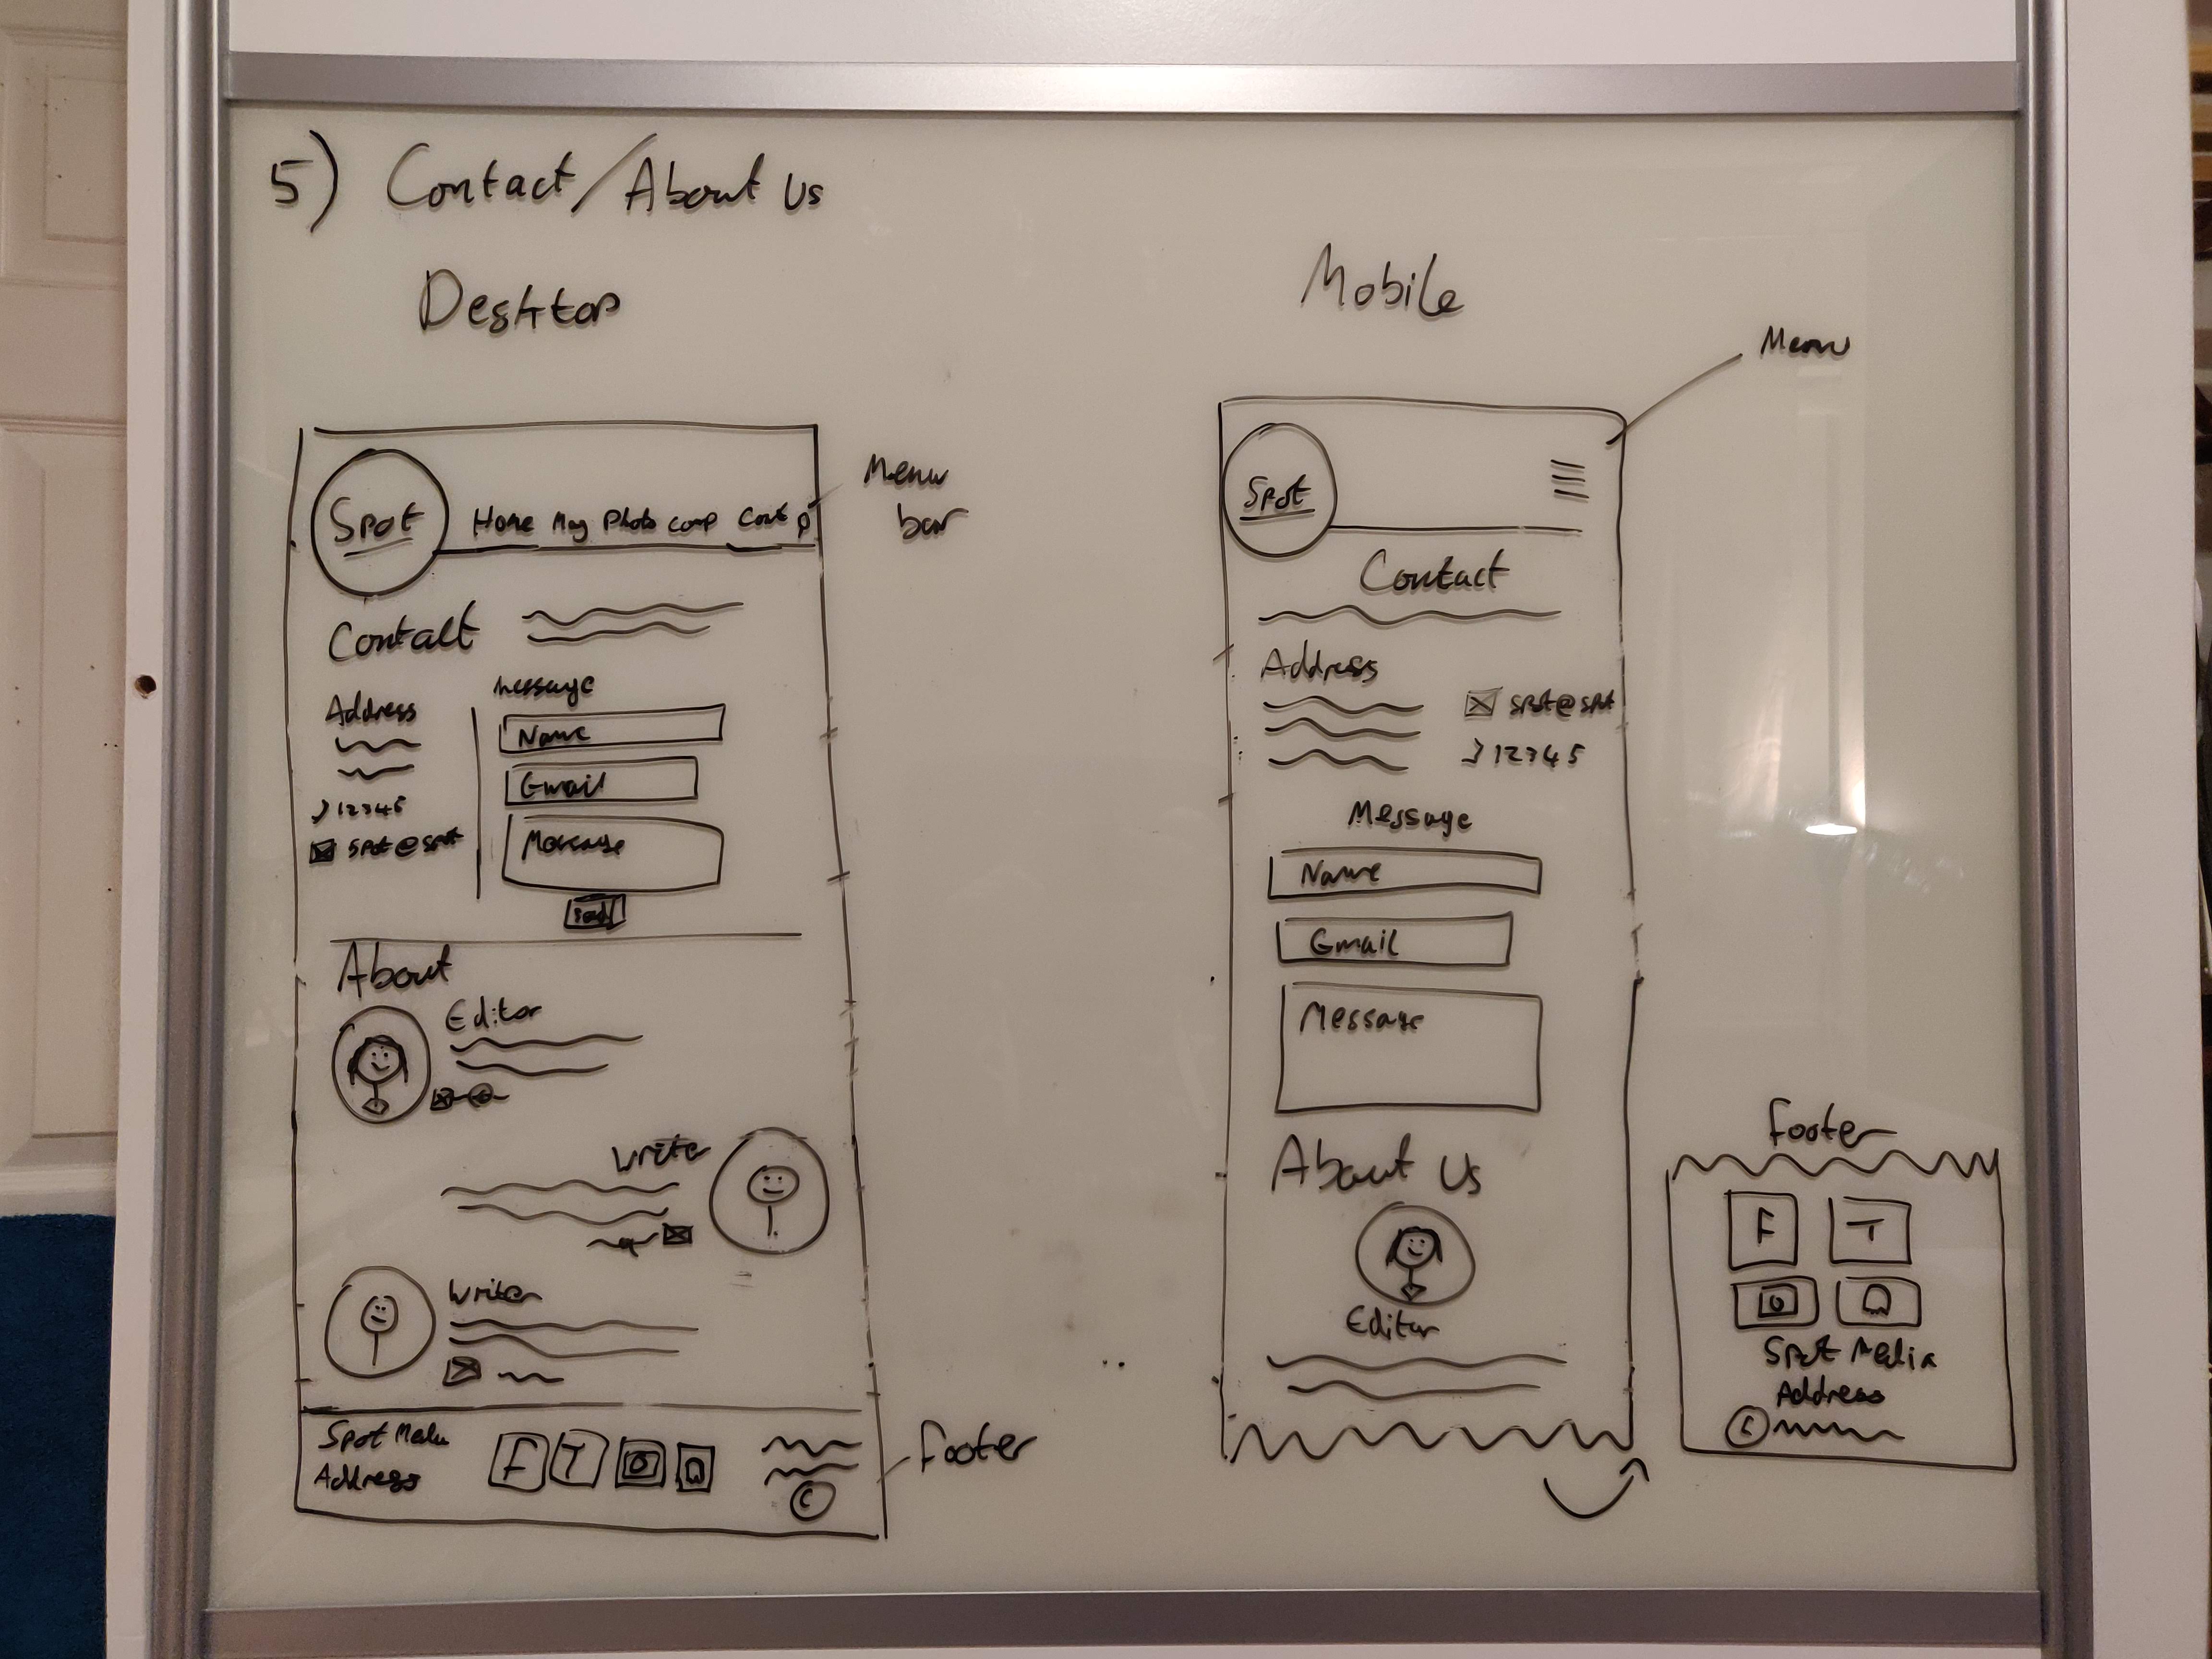 5) Contact/About Us
Desktop
Spot
Home Mag Photo comp Cont
Menu
bar
Contact
Address
12345
spot@spot
Message
Name
Email
Message
Send
About
Editor
Writer
Writer
Spot Media
Address
F T
C
Footer
Mobile
Menu
Spot
Contact
Address
spot@spot
12345
Message
Name
Email
Message
About Us
Editor
Footer
F T
Spot Media
Address
C